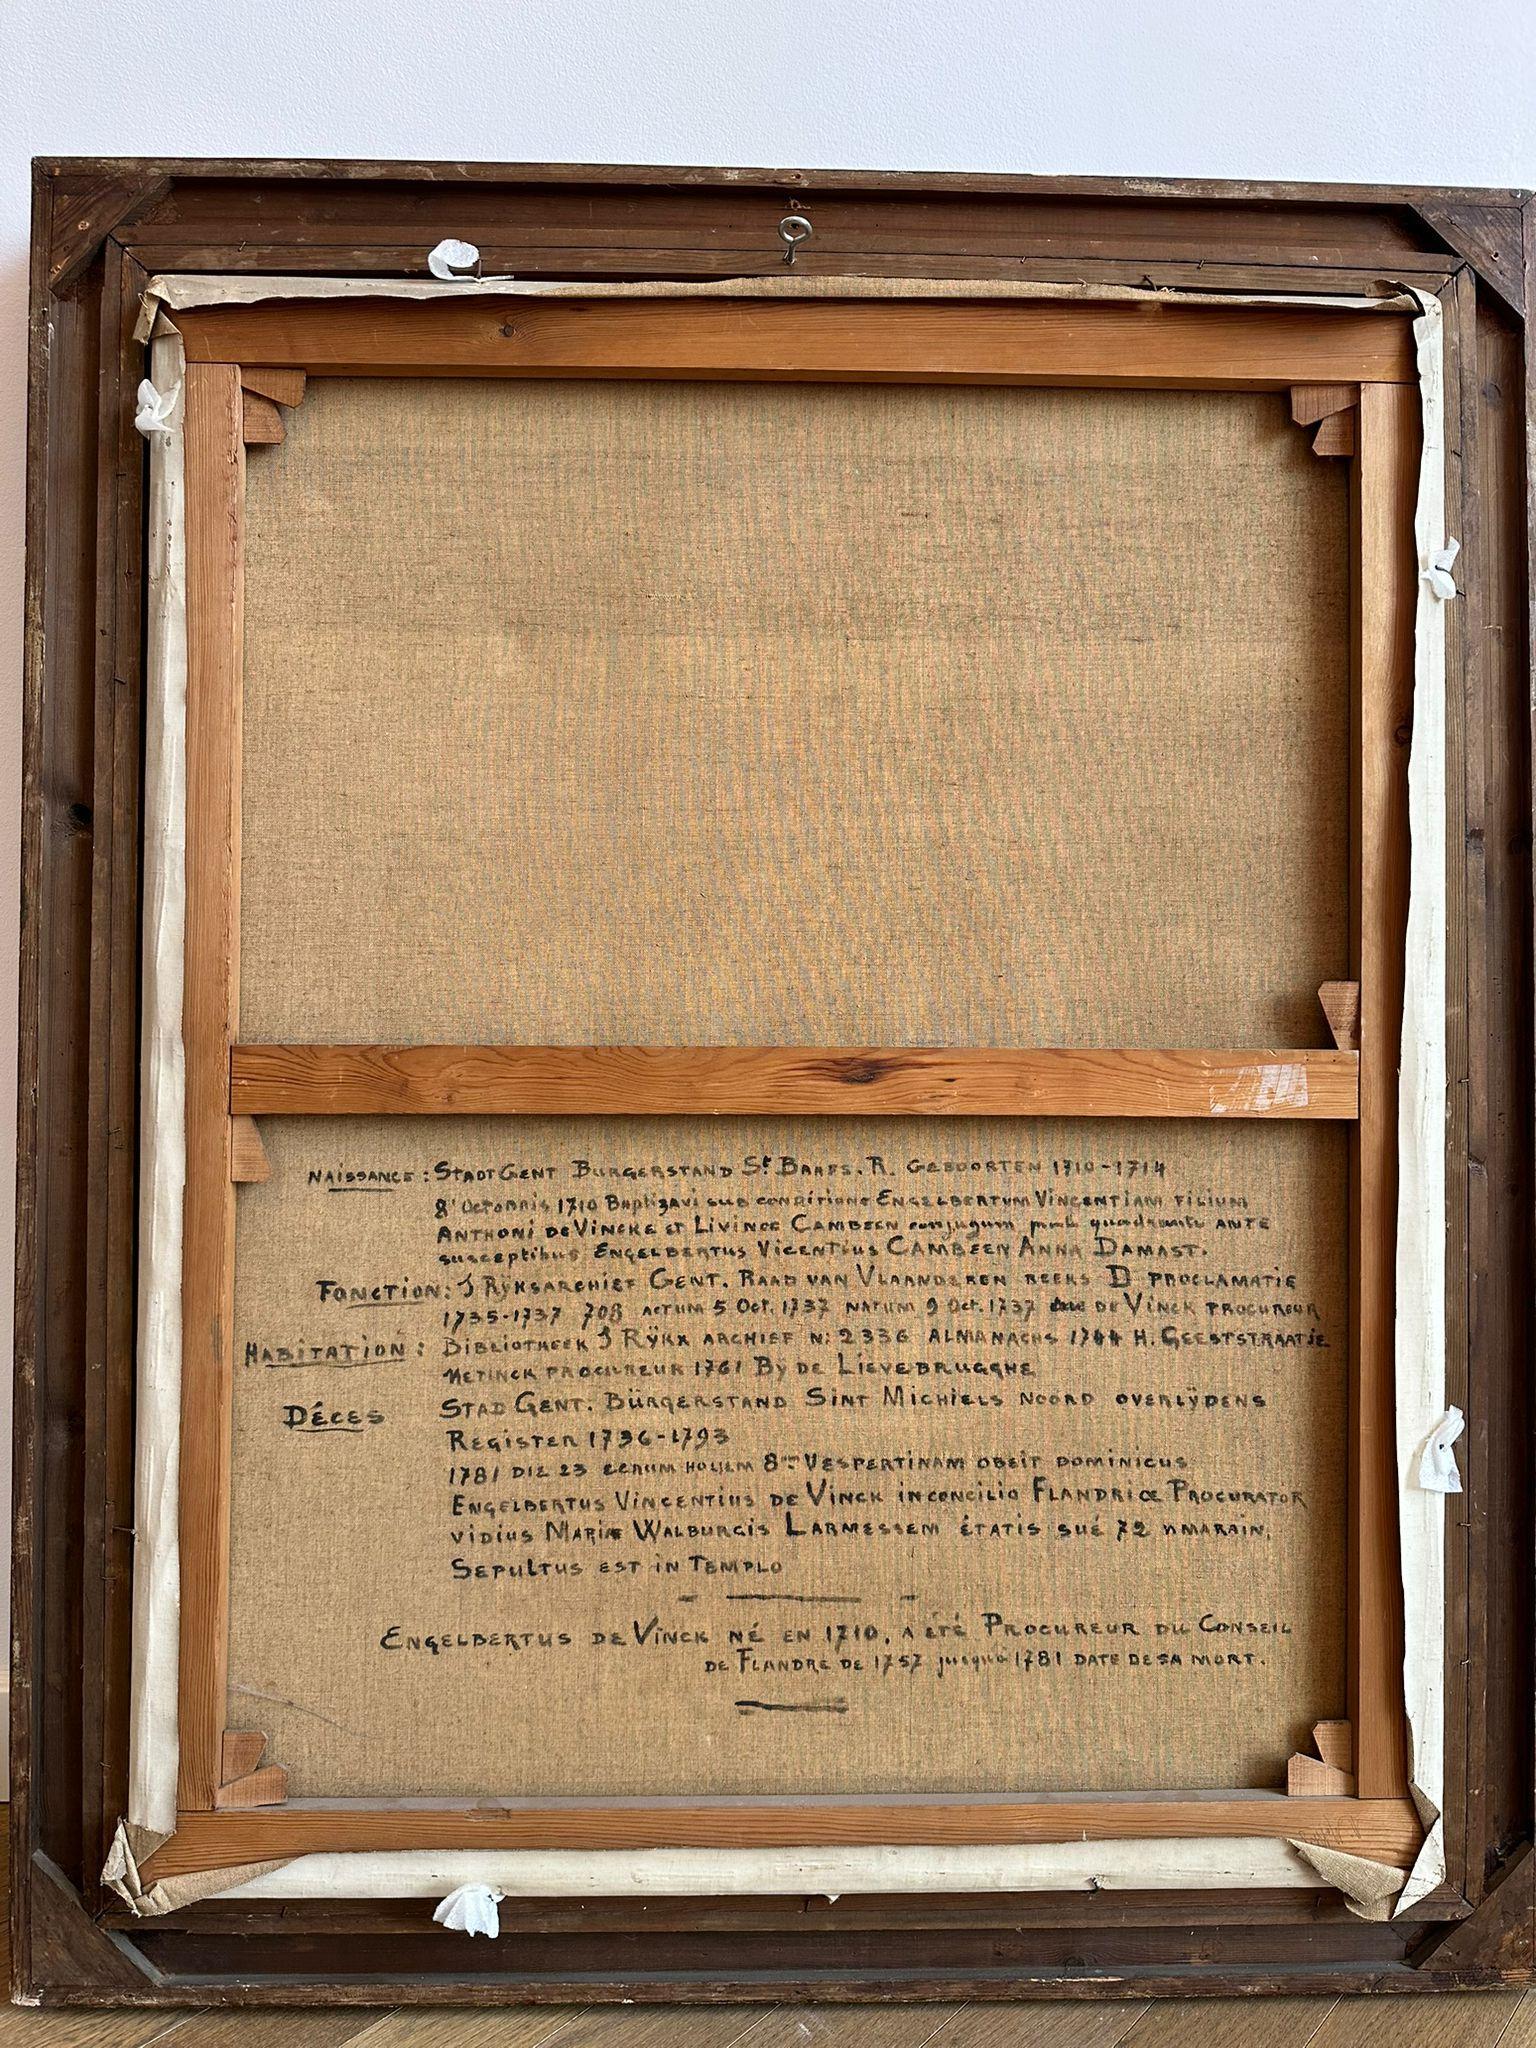 NAISSANCE : STADT GENT BURGERSTAND St BAAFS. R. GEBOORTEN 1710-1714
8' OCTOBRIS 1710 Baptizavi sub conditione ENGELBERTUM VINCENTIAM FILIUM
ANTHONI DE VINCKE ET LIVINCE CAMBEEN conjugum quadrante ANTE
susceptibus ENGELBERTUS VICENTIUS CAMBEEN ANNA DAMAST.
FONCTION : RŸKSARCHIEF GENT. RAAD VAN VLAANDEREN REEKS D PROCLAMATIE
1735-1737 708 ACTUM 5 Oct. 1737 NATUM 9 Oct. 1737 DE VINCK PROCUREUR
HABITATION : BIBLIOTHEEK RŸKX ARCHIEF N: 2336 ALMANACHS 1744 H. GEESTSTRAATJE
METINCK PROCUREUR 1761 BY DE LIEVEBRUGGHE
DÉCES STAD GENT. BÜRGERSTAND SINT MICHIELS NOORD OVERLŸDENS
REGISTER 1736-1793
1781 DIE 23 8 VESPERTINAM OBEIT DOMINICUS
ENGELBERTUS VINCENTIUS DE VINCK IN CONCILIO FLANDRIŒ PROCURATOR
VIDIUS MARIÆ WALBURGIS LARMESSEM ÉTATIS SUÉ 72
SEPULTUS EST IN TEMPLO
ENGELBERTUS DE VINCK NÉ EN 1710, A ÉTÉ PROCUREUR DU CONSEIL
DE FLANDRE DE 1757 jusqua 1781 DATE DE SA MORT.